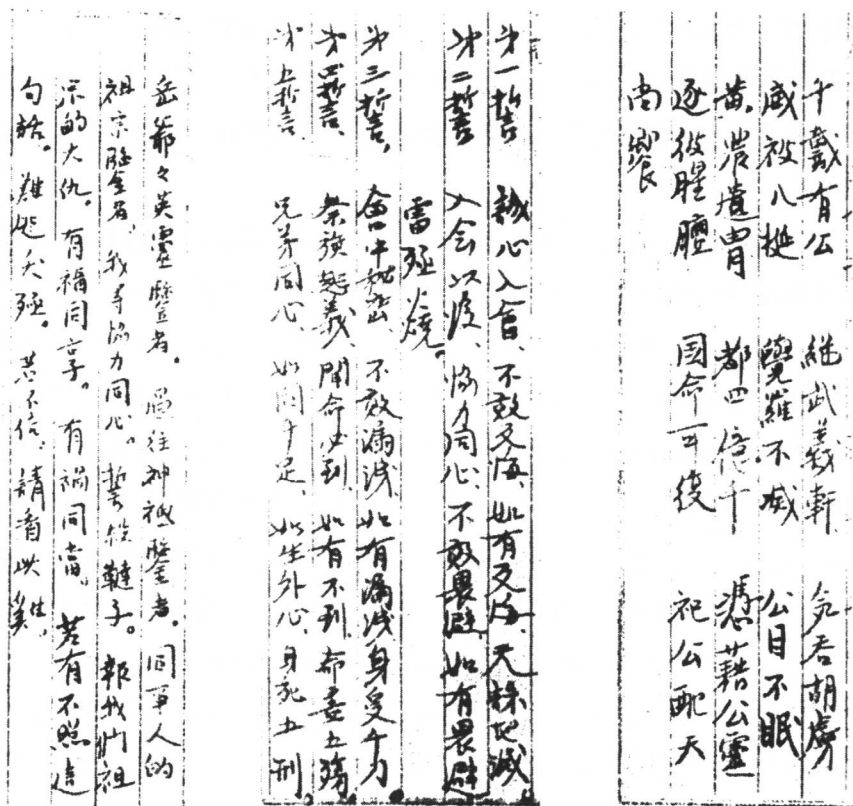 千載有公 継武羲軒 氣吞胡虜
威被八挻 覺羅不滅 公目不眠
黄農遺胄 都四億千 憑藉公靈
逐彼腥膻 國命可復 祀公配天
尚饗
第一誓 誠心入會、不敢反悔、如有反悔、天誅地滅
第二誓 入会以後、協力同心、不敢畏避、如有畏避
雷殛火燒。
第三誓、會中秘密、不敢漏洩、如有漏洩身受千刀
第四誓、祭旗起義、聞命必到、如有不到、命盡五殤
第五誓、兄弟同心、如同手足、如生外心、身死五刑。
岳爺々英靈鑒者。過往神祗鑒者。同事人的
祖宗鑒者、我等協力同心。誓殺韃子。報我們祖
宗的大仇。有福同享。有禍同當。若有不照這
句話。難逃天殛。若不信、請看此雞。